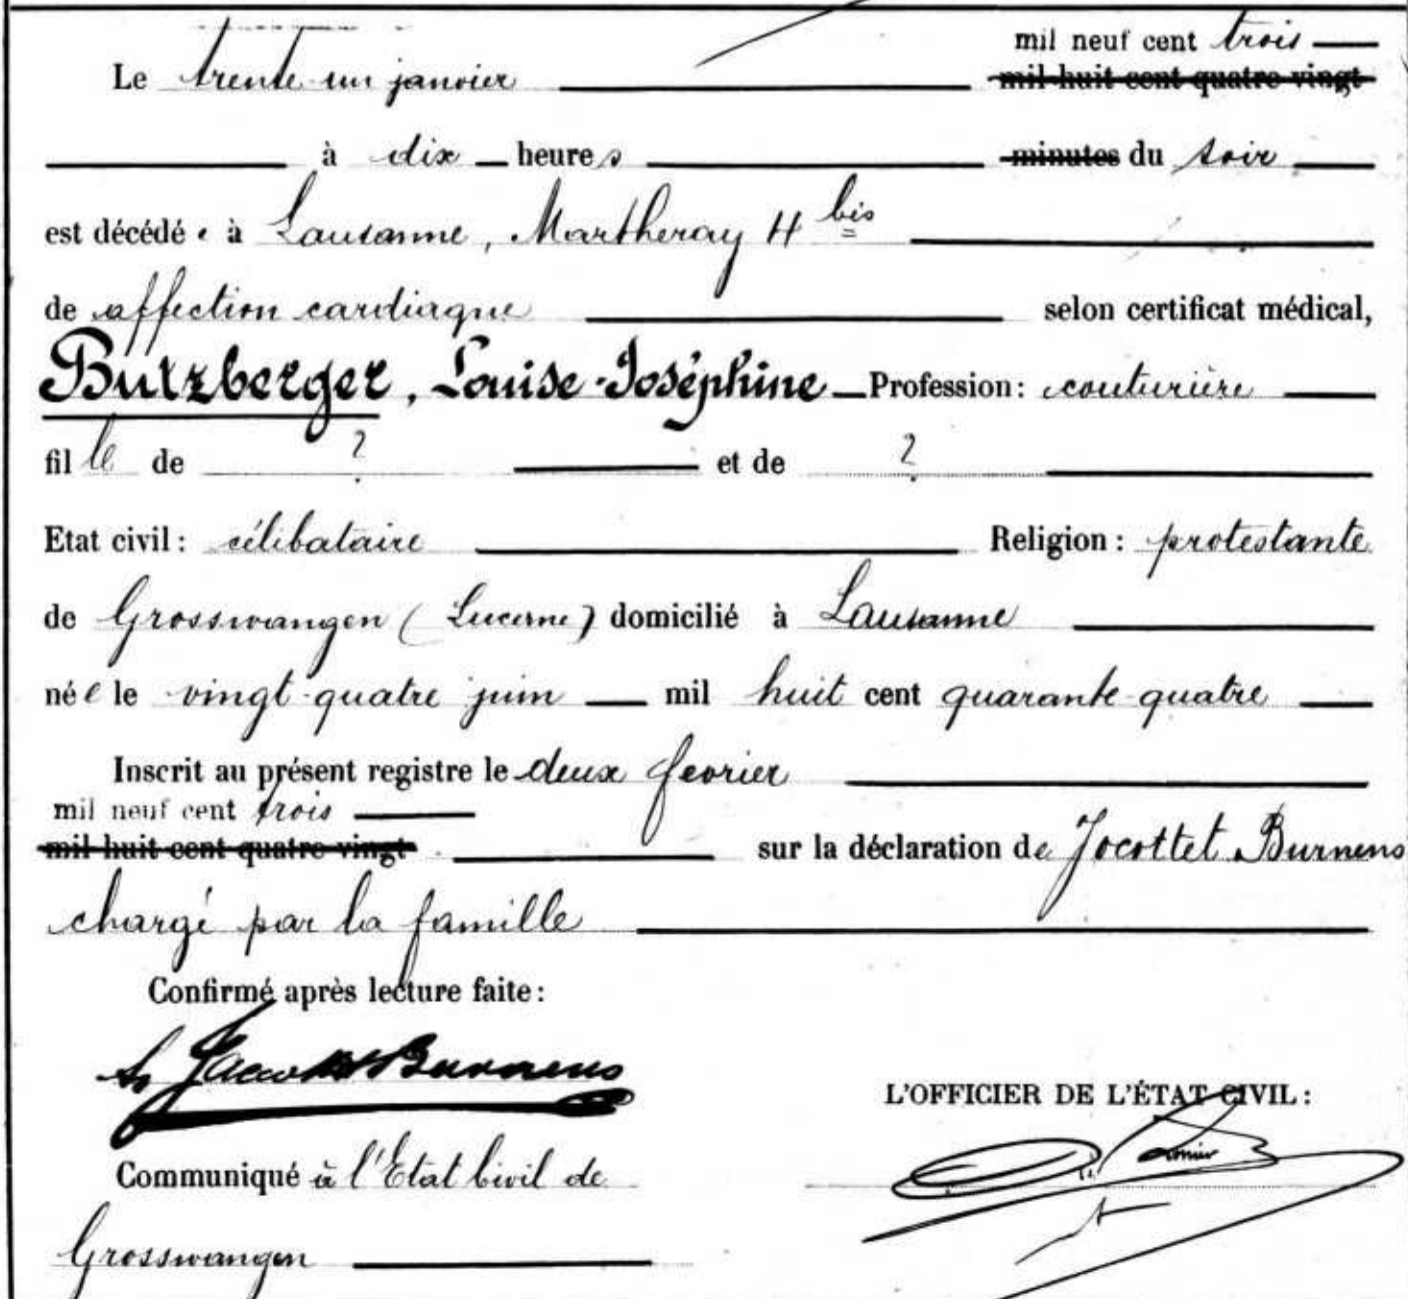 mil neuf cent trois
Le trente-un janvier mil huit cent quatre vingt
à dix heures minutes du soir
est décédée à Lausanne, Martheray 4 bis
de affection cardiaque selon certificat médical,
Butzberger, Louise-Joséphine Profession: couturière
fille de ? et de ?
Etat civil: célibataire Religion: protestante
de Grosswangen (Lucerne) domicilié à Lausanne
née le vingt-quatre juin mil huit cent quarante-quatre
Inscrit au présent registre le deux février
mil neuf cent trois
mil huit cent quatre vingt sur la déclaration de Jacottet Burnens
chargé par la famille
Confirmé après lecture faite:
Jacottet Burnens
L'OFFICIER DE L'ÉTAT CIVIL:
Communiqué à l'Etat Civil de
Grosswangen